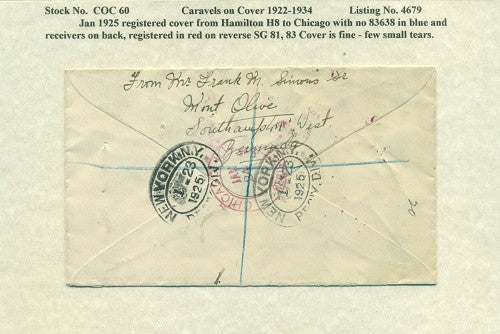 Stock No. COC 60 Caravels on Cover 1922-1934 Listing No. 4679
Jan 1925 registered cover from Hamilton H8 to Chicago with no 83638 in blue and
receivers on back, registered in red on reverse SG 81, 83 Cover is fine - few small tears.
From Mr. Frank M. Simons Sr
Mont Olive
Southampton West.
Bermuda
NEW YORK, N.Y.
23
1925
NEW YORK, N.Y.
23
1925
REG'Y. DIV.
CHICAGO
20